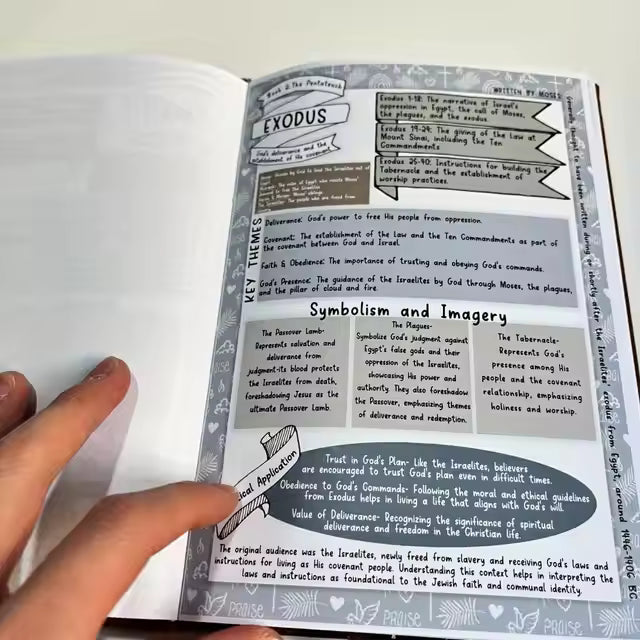 Book 2: The Pentateuch
EXODUS
God's deliverance and the
establishment of His covenant
WRITTEN BY MOSES
Exodus 1-18: The narrative of Israel's
oppression in Egypt, the call of Moses,
the plagues, and the exodus
Exodus 19-24: The giving of the Law at
Mount Sinai, including the Ten
Commandments
Exodus 25-40: Instructions for building the
Tabernacle and the establishment of
worship practices.
KEY THEMES
Deliverance: God's power to free His people from oppression.
Covenant: The establishment of the Law and the Ten Commandments as part of
the covenant between God and Israel.
Faith & Obedience: The importance of trusting and obeying God's commands.
God's Presence: The guidance of the Israelites by God through Moses, the plagues,
and the pillar of cloud and fire.
Symbolism and Imagery
The Passover Lamb-
Represents salvation and
deliverance from
judgment-its blood protects
the Israelites from death,
foreshadowing Jesus as the
ultimate Passover Lamb.
The Plagues-
Symbolize God's judgment against
Egypt's false gods and their
oppression of the Israelites,
showcasing His power and
authority. They also foreshadow
the Passover, emphasizing themes
of deliverance and redemption.
The Tabernacle-
Represents God's
presence among His
people and the covenant
relationship, emphasizing
holiness and worship.
ical Application
Trust in God's Plan- Like the Israelites, believers
are encouraged to trust God's plan even in difficult times.
Obedience to God's Commands- Following the moral and ethical guidelines
from Exodus helps in living a life that aligns with God's will.
Value of Deliverance- Recognizing the significance of spiritual
deliverance and freedom in the Christian life.
The original audience was the Israelites, newly freed from slavery and receiving God's laws and
instructions for living as His covenant people. Understanding this context helps in interpreting the
laws and instructions as foundational to the Jewish faith and communal identity.
thought to have been written during or shortly after the Israelites' exodus from Egypt, around 1446-1406 BC
PRAISE
PRAISE